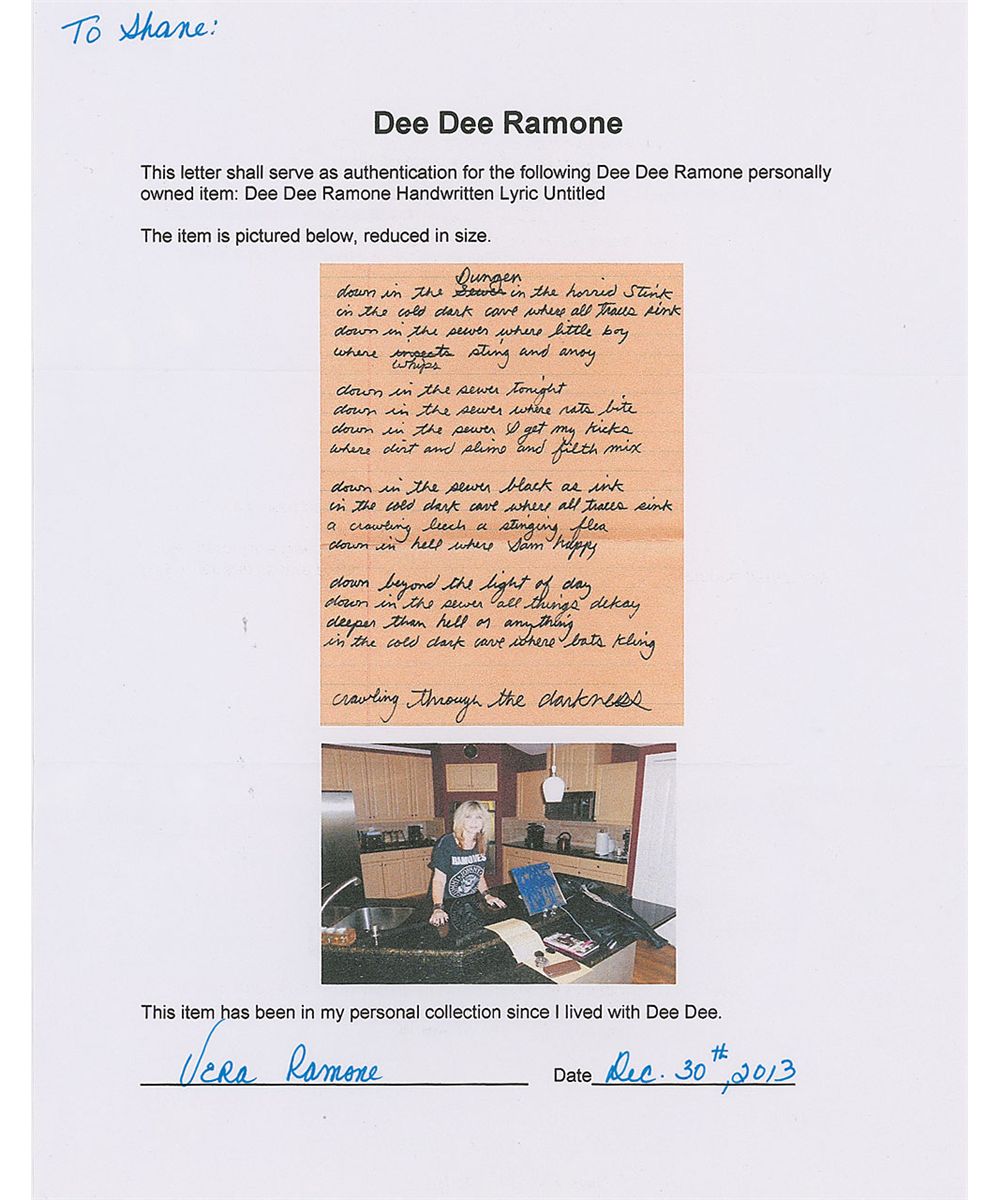 To Shane:
Dee Dee Ramone
This letter shall serve as authentication for the following Dee Dee Ramone personally
owned item: Dee Dee Ramone Handwritten Lyric Untitled
The item is pictured below, reduced in size.
Dungen
down in the sewer in the horrid Stink
in the cold dark cave where all traces sink
down in the sewer where little boy
where insects sting and anoy
whips
down in the sewer tonight
down in the sewer where rats bite
down in the sewer I get my kicks
where dirt and slime and filth mix
down in the sewer black as ink
in the cold dark cave where all traces sink
a crawling leech a stinging flea
down in hell where Sam happy
down beyond the light of day
down in the sewer all things dekay
deeper than hell or anything
in the cold dark cave where bats kling
crawling through the darkness
RAMONES
This item has been in my personal collection since I lived with Dee Dee.
Vera Ramone Date Dec. 30th, 2013